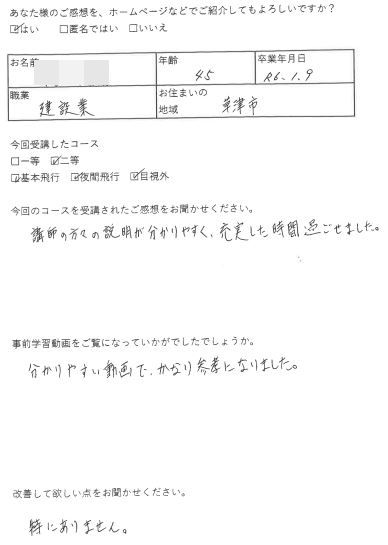 あなた様のご感想を、ホームページなどでご紹介してもよろしいですか？
☑はい　□匿名ではい　□いいえ
お名前　年齢　卒業年月日
45　R6.1.9
職業　お住まいの地域
建設業　草津市
今回受講したコース
□一等　☑二等
☑基本飛行　☑夜間飛行　☑目視外
今回のコースを受講されたご感想をお聞かせください。
講師の方々の説明が分かりやすく、充実した時間過ごせました。
事前学習動画をご覧になっていかがでしたでしょうか。
分かりやすい動画で、かなり参考になりました。
改善して欲しい点をお聞かせください。
特にありません。